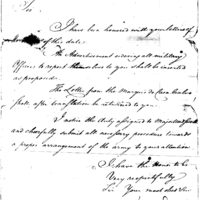 Sir
I have been honored with your letter of
of this date.
The Advertisement ordering all military
Officers to report themselves to you shall be inserted
as proposed.
The Letter from the Marquis de Casa
shall after translation be returned to you.
I notice the duty assigned to Major
and chearfully submit all necessary procedure towards
a proper arrangement of the army to your attention
I have the Honor to be
Very respectfully
Sir Your most obt Ser